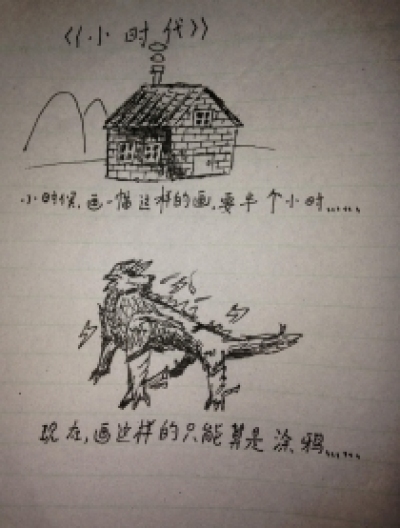 《小时代》
小时候,画一幅这样的画,要半个小时……
现在,画这样的只能算是涂鸦……